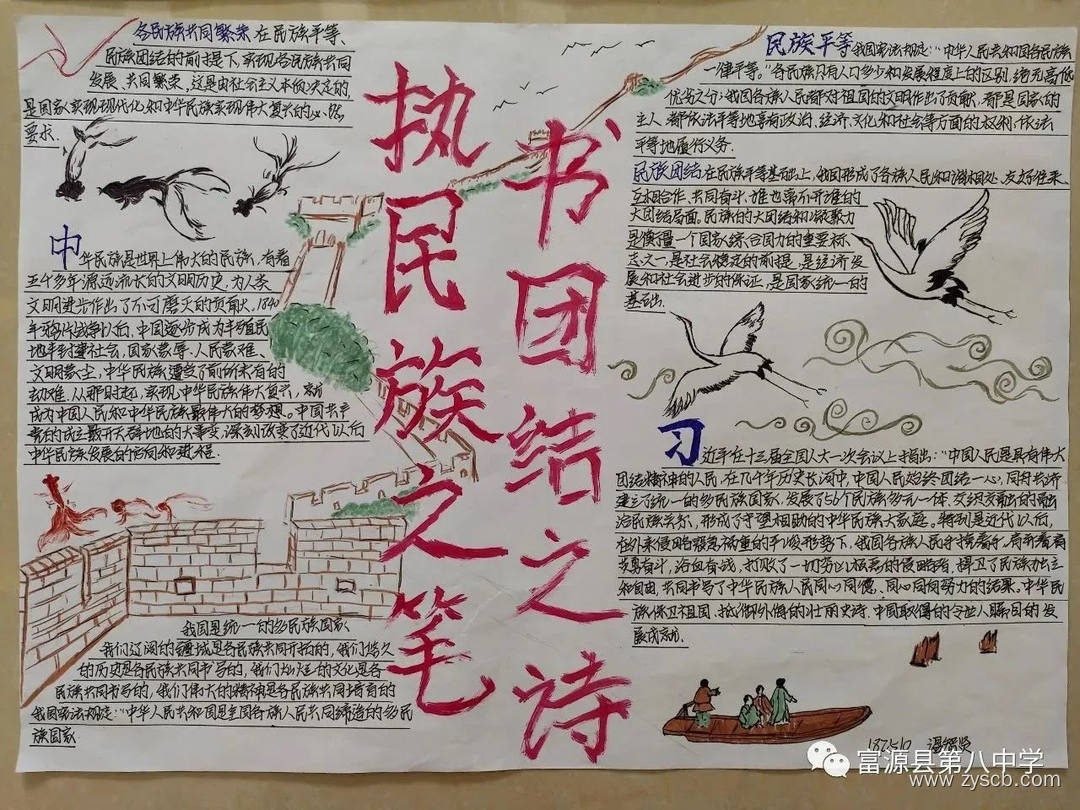 各民族共同繁荣 在民族平等、
民族团结的前提下，实现各民族共同
发展、共同繁荣，这是由社会主义本质决定的，
是国家实现现代化和中华民族实现伟大复兴的必然
要求。
中华民族是世界上伟大的民族，有着
五千多年源远流长的文明历史，为人类
文明进步作出了不可磨灭的贡献。1840
年鸦片战争以后，中国逐步成为半殖民
地半封建社会，国家蒙辱、人民蒙难、
文明蒙尘，中华民族遭受了前所未有的
劫难。从那时起，实现中华民族伟大复兴，就
成为中国人民和中华民族最伟大的梦想。中国共产
党的成立是开天辟地的大事变，深刻改变了近代以后
中华民族发展的方向和进程.
我国是统一的多民族国家
我们辽阔的疆域是各民族共同开拓的，我们悠久
的历史是各民族共同书写的，我们灿烂的文化是各
民族共同书写的，我们伟大的精神是各民族共同培育的
我国宪法规定："中华人民共和国是全国各族人民共同缔造的多民
族国家
执民族之笔
书团结之诗
民族平等 我国宪法规定："中华人民共和国各民族
一律平等。"各民族只有人口多少和发展程度上的区别，绝无高低
优劣之分；我国各族人民都对祖国的文明作出了贡献，都是国家的
主人，都依法平等地享有政治、经济、文化和社会等方面的权利，依法
平等地履行义务.
民族团结 在民族平等基础上，我国形成了各族人民和谐相处、友好往来、
互相合作、共同奋斗，谁也离不开谁的
大团结局面。民族的大团结和凝聚力
是衡量一个国家综合国力的重要标
志之一，是社会稳定的前提，是经济发
展和社会进步的保证，是国家统一的
基础.
习近平在十三届全国人大一次会议上指出："中国人民是具有伟大
团结精神的人民，在几千年历史长河中，中国人民始终团结一心，同舟共济，
建立了统一的多民族国家，发展了56个民族多元一体、交织交融的融
洽民族关系，形成了守望相助的中华民族大家庭。特别是近代以后，
在外来侵略寇急祸重的严峻形势下，我国各族人民手挽着手、肩并着肩
英勇奋斗，浴血奋战，打败了一切穷凶极恶的侵略者，捍卫了民族独立
和自由，共同书写了中华民族人民同心同德、同心同向努力的结果。中华民
族保卫祖国、抵御外侮的壮丽史诗。中国取得的令世人瞩目的发
展成就.
富源县第八中学
www.zyscb.com